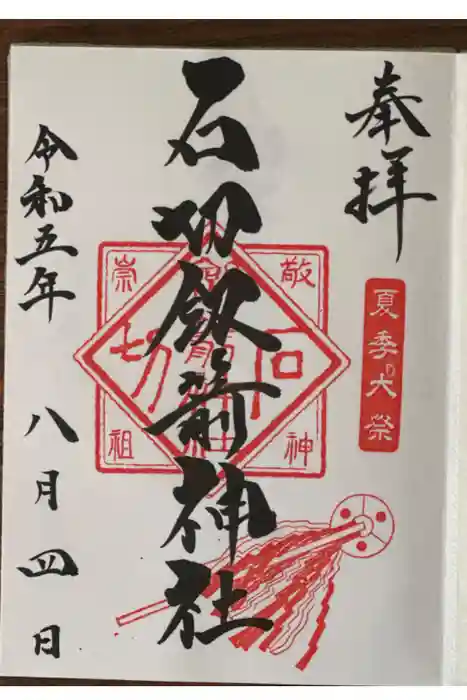 奉拝
夏季大祭
石切劔箭神社
敬神
崇祖
石切
令和五年
八月四日